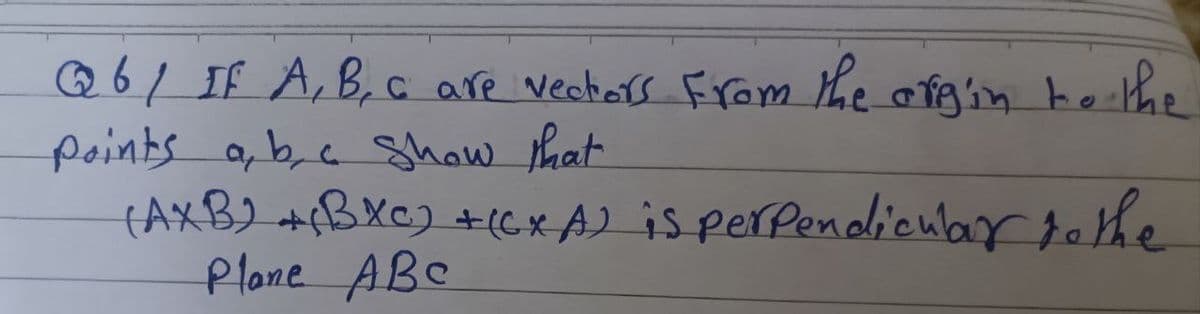 Q6/ If A, B, C are vectors From the orgin to the
points a, b, c Show that
(AXB) +(BXC) +(CXA) is perpendicular to the
Plane ABC